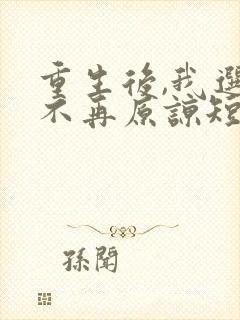 重生後,我選
不再原諒短
孫聞